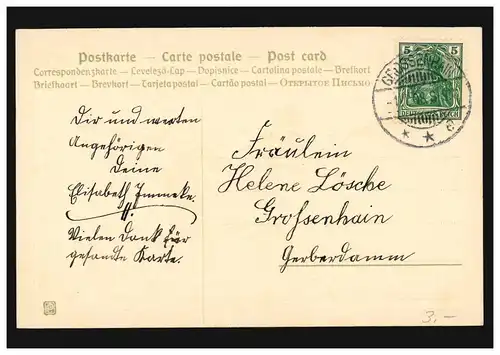 Postkarte – Carte postale – Post card
Correspondenzkarte – Levelezö-Lap – Dopisnice – Cartolina postale – Brefkort
Briefkaart – Brevkort – Tarjeta postal – Cartão postal – Открытое Письмо
5 5
GROSSENHAIN
Dir und werten
Angehörigen
Deine
Elisabeth Immeke.
Vielen Dank für
gesandte Karte.
Fräulein
Helene Lösche
Großenhain
Gerberdamm
3.-